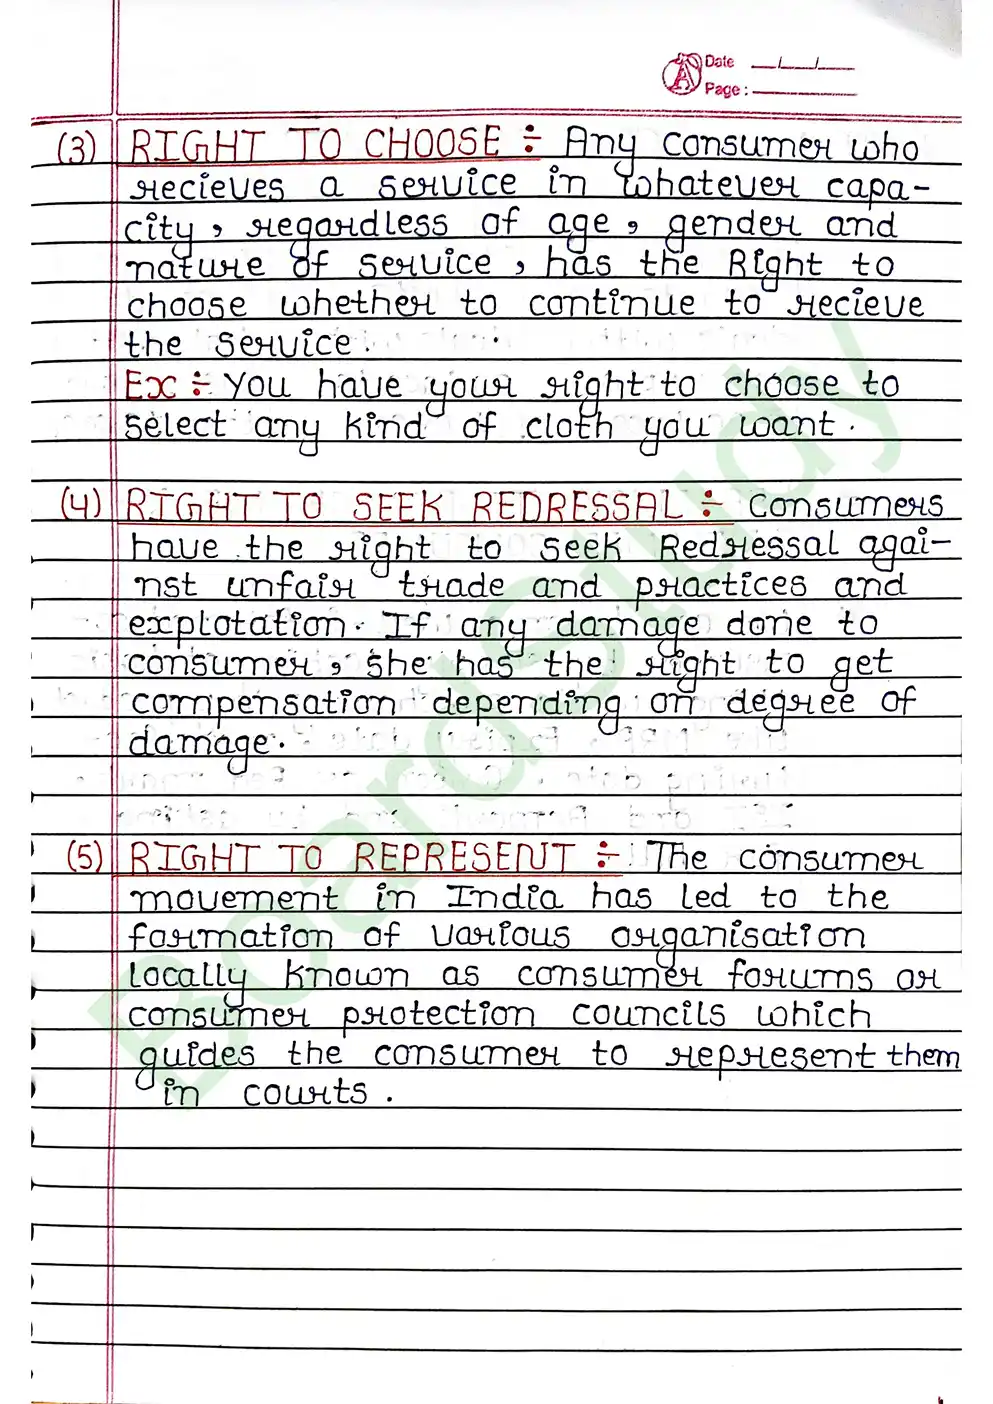 Date __/__/__
Page : ______
(3) RIGHT TO CHOOSE ÷ Any consumer who
recieves a service in whatever capa-
city, regardless of age, gender and
nature of service, has the Right to
choose whether to continue to recieve
the service.
Ex ÷ You have your right to choose to
select any kind of cloth you want.
(4) RIGHT TO SEEK REDRESSAL ÷ Consumers
have the right to seek Redressal agai-
nst unfair trade and practices and
explotation. If any damage done to
consumer, she has the right to get
compensation depending on degree of
damage.
(5) RIGHT TO REPRESENT ÷ The consumer
movement in India has led to the
formation of various organisation
locally known as consumer forums or
consumer protection councils which
guides the consumer to represent them
in courts.
BoardStudy